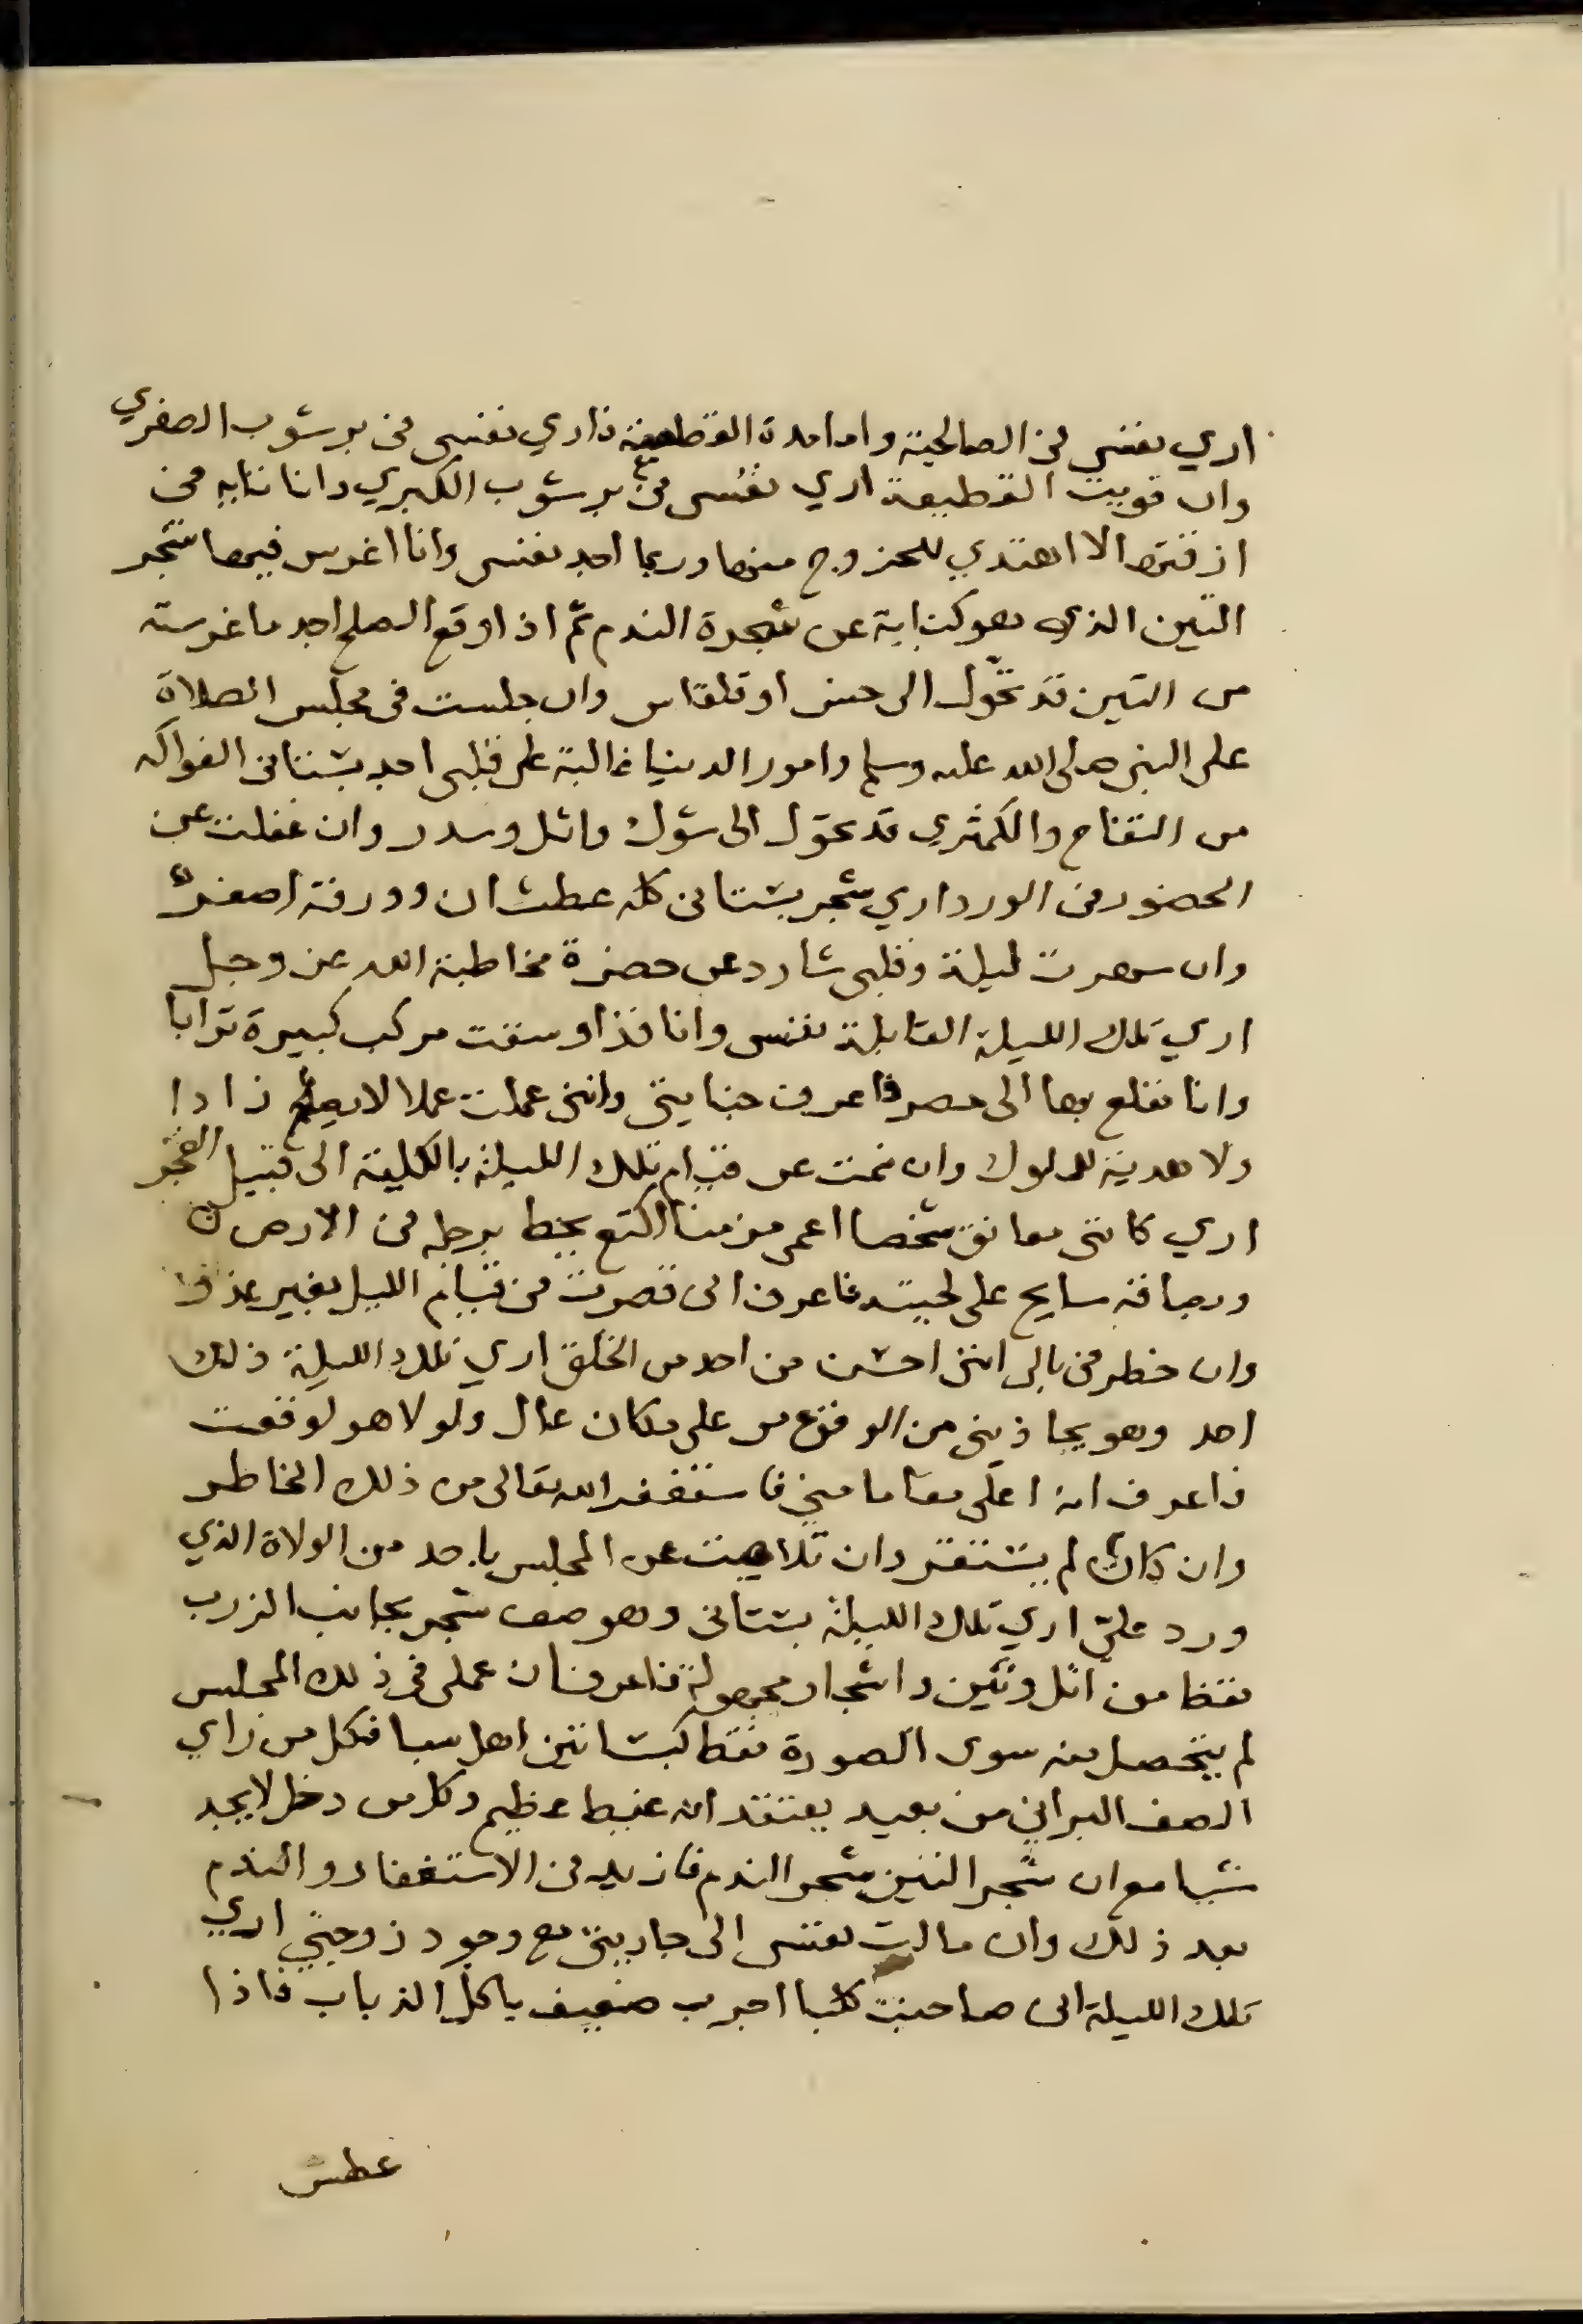 اري نفسي في الصالحية واما مدة القطيعة فاري نفسي في برشوب الصغري
وان قويت القطيعة اري نفسي في برشوب الكبري وانا تايه في
ازقتها لا اهتدي للخروج منها وربما اجد نفسي وانا اغرس فيها شجر
التين الذي هو كناية عن شجرة الندم ثم اذا وقع الصلح اجد ما غرسته
من التين قد تحول الى خس او قلقاس وان جلست في مجلس الصلاة
على النبي صلى الله عليه وسلم وامور الدنيا غالبة على قلبي اجد بستاني الفواكه
من التفاح والكمثري قد تحول الى شوك واثل وسدر وان غفلت عن
الحضور في الورد اري شجر بستاني كله عطشان وورقه اصفر
وان سهرت ليلة وقلبي شارد عن حضرة مخاطبة الله عز وجل
اري تلك الليلة القابلة نفسي وانا قد اوسقت مركب كبيرة ترابا
وانا مقلع بها الى مصر فاعرف جنايتي وانني عملت عملا لا يصلح زادا
ولا هدية للملوك وان نمت عن قيام تلك الليلة بالكلية الى قبيل الفجر
اري كانني معانق شخصا اعمى مزمنا اكتع يخط برجله في الارض
وريقه سايح على لحيته فاعرف اني قصرت في قيام الليل بغير عذر
وان خطر في بالي انني احسن من احد من الخلق اري تلك الليلة ذلك
احد وهو يحاذيني من الوقوع من على مكان عال ولولا هو لوقعت
فاعرف انه اعلى مقاما مني فاستغفر الله تعالى من ذلك الخاطر
وان كان لم يستقر وان تلاهيت عن المجلس باحد من الولاة الذي
ورد علي اري تلك الليلة بستاني وهو صف شجر بجانب الزرب
فقط من اثل وتين واشجار مجهولة فاعرف ان عملي في ذلك المجلس
لم يتحصل منه سوى الصورة فقط كبساتين اهل سبا فكل من راي
الصف البراني من بعيد يعتقد انه غيط عظيم وكل من دخل لا يجد
شيا مع ان شجر التين شجر الندم فازيد في الاستغفار والندم
بعد ذلك وان مالت نفسي الى جاريتي مع وجود زوجتي اري
تلك الليلة اني صاحبت كلبا اجرب ضعيف ياكل الذباب فاذا
عطس